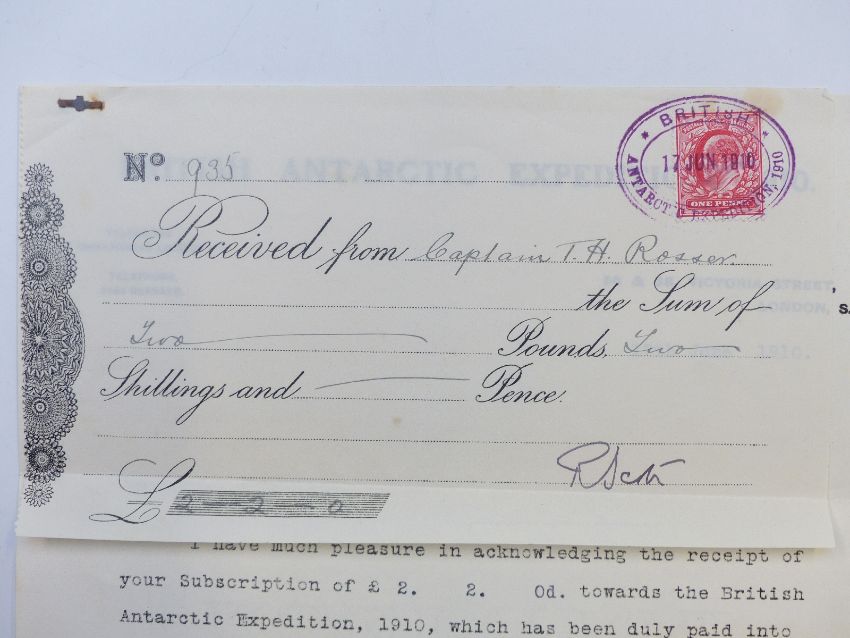 BRITISH
17 JUN 1910
ANTARCTIC EXPEDITION, 1910
ONE PENNY
No. 935
Received from Captain T. H. Rosser
the Sum of
Two Pounds, Two
Shillings and Pence.
RScott
£ 2 - 2 - 0
I have much pleasure in acknowledging the receipt of
your Subscription of £ 2. 2. 0d. towards the British
Antarctic Expedition, 1910, which has been duly paid into